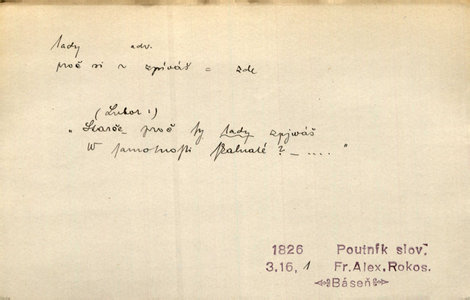 tady adv.
proč si ~ zpíváš = zde
(Lubor:)
"Starče proč sy tady zpjwáš
W samotnosti skalnaté? – ...."
1826 Poutník slov.
3.16, 1 Fr. Alex. Rokos.
Báseň